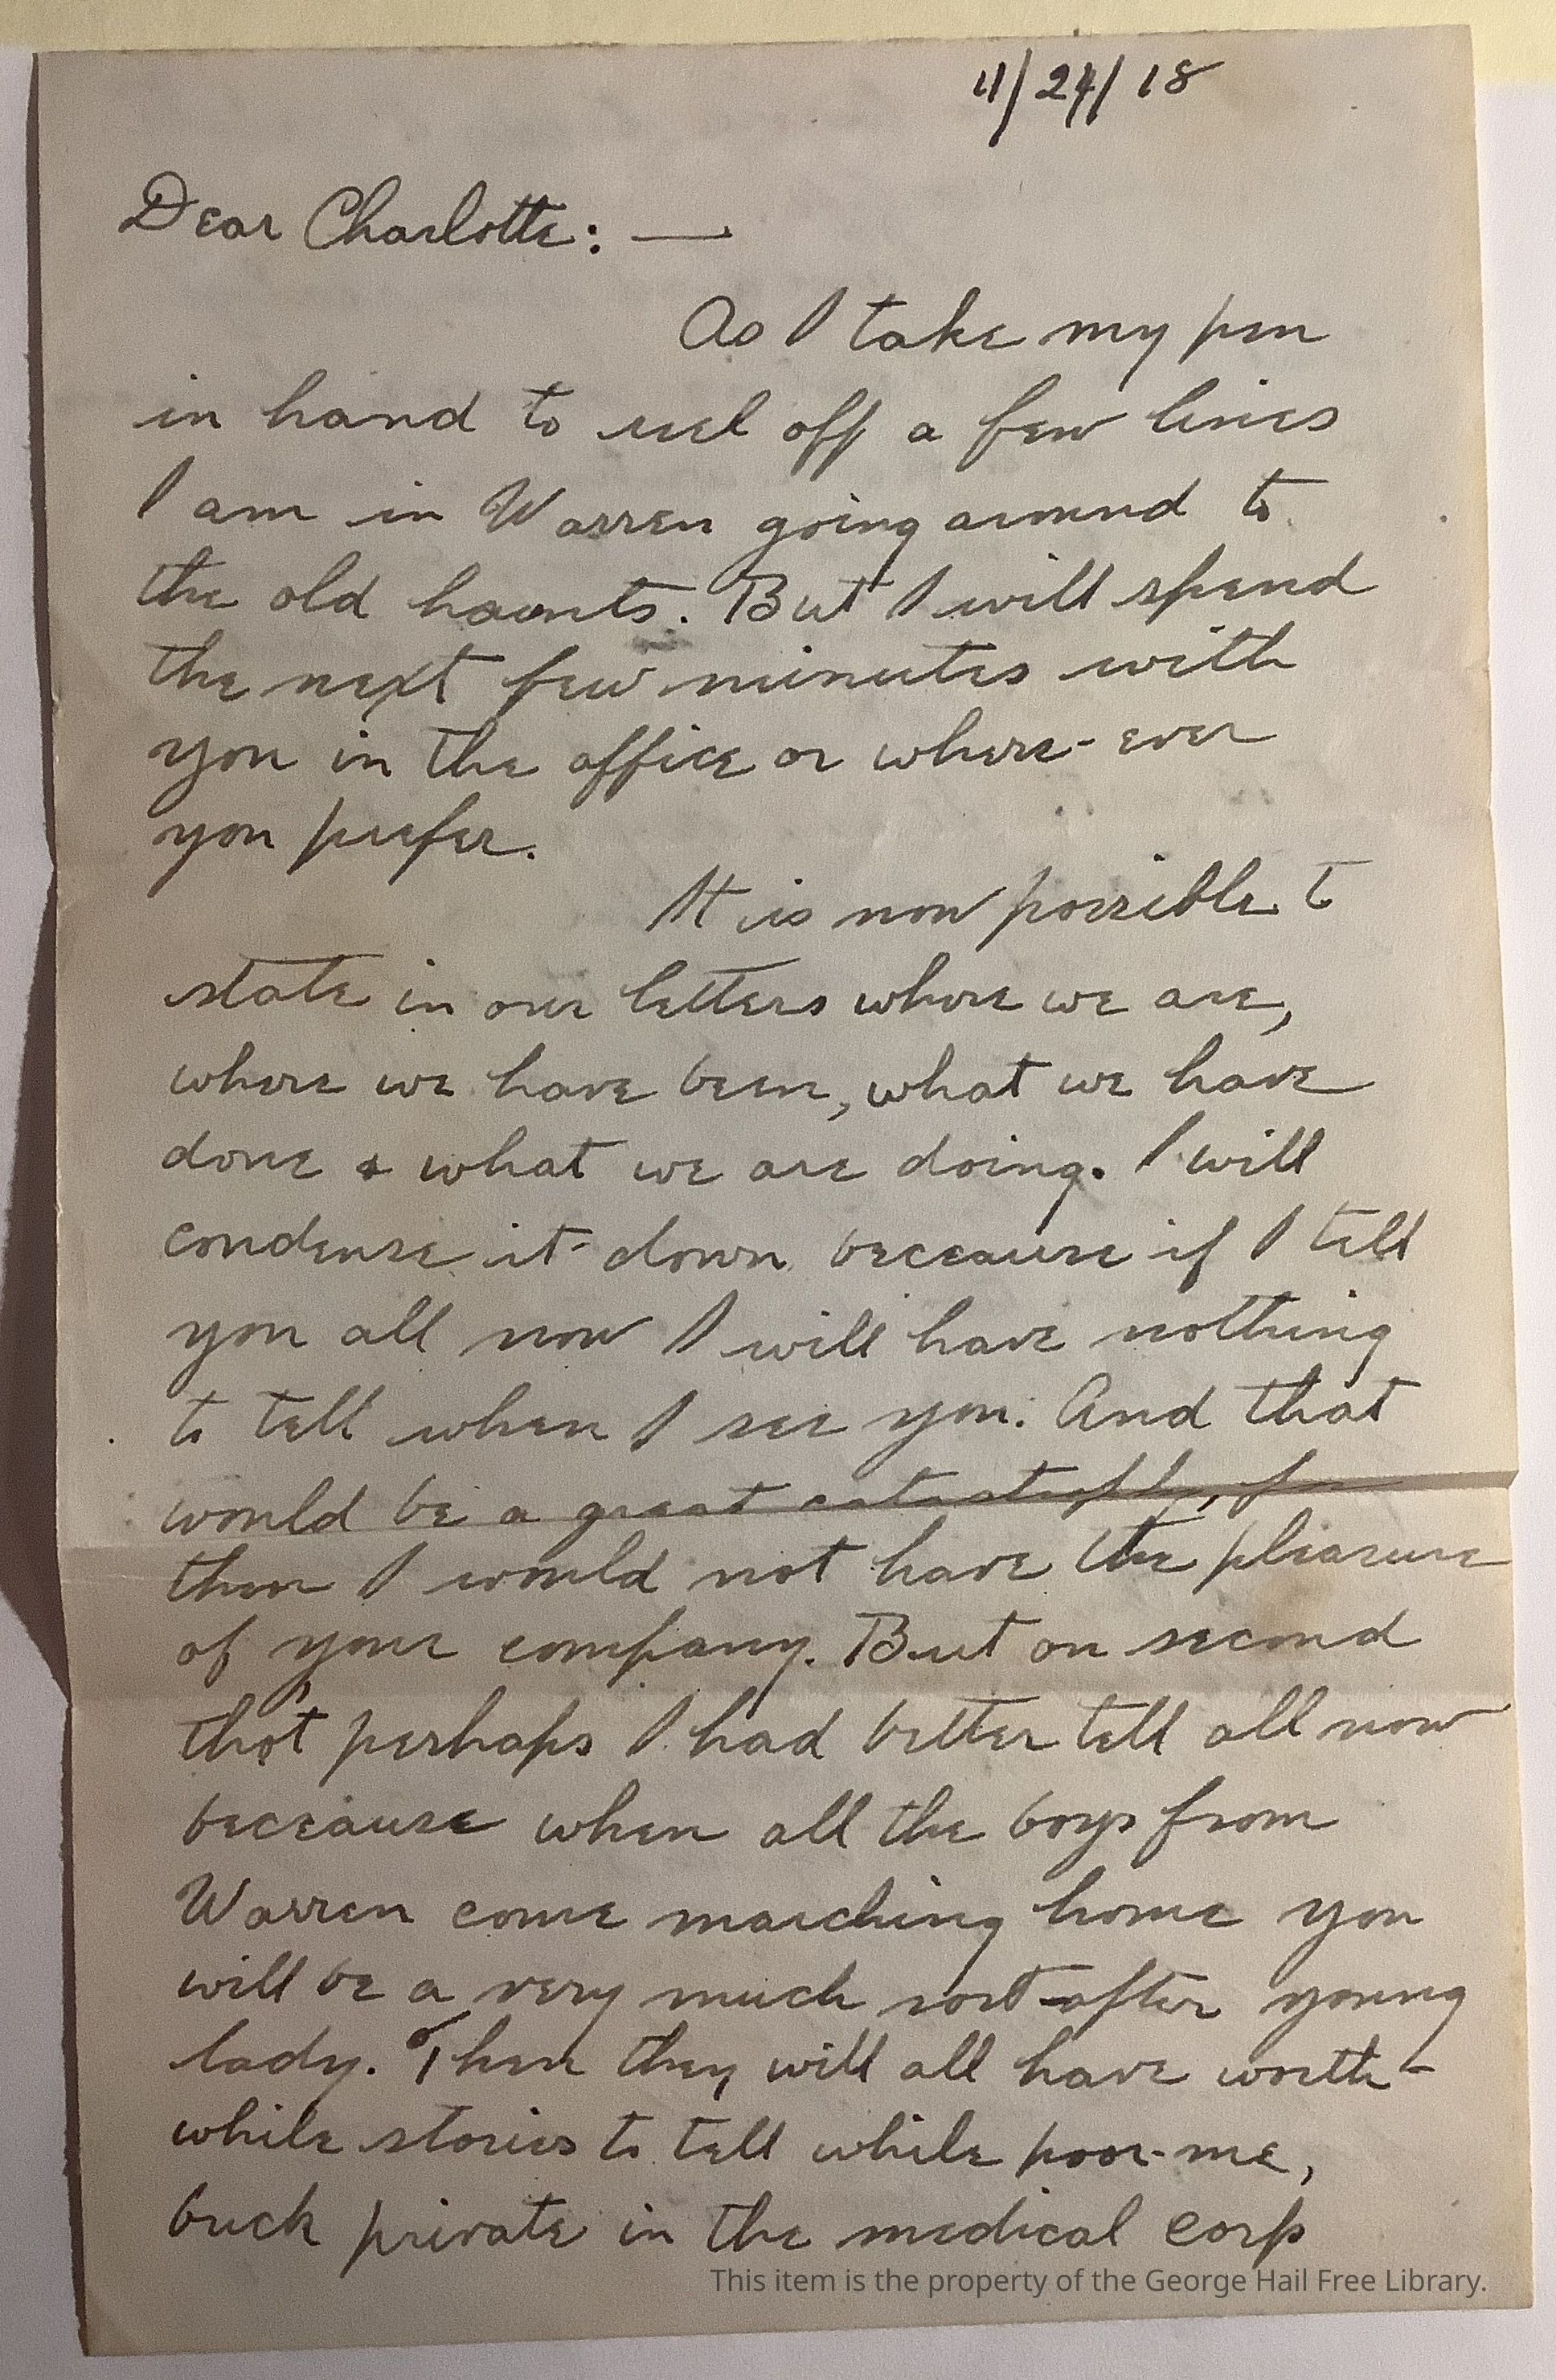 11/24/18
Dear Charlotte: —
As I take my pen
in hand to reel off a few lines
I am in Warren going around to
the old haunts. But I will spend
the next few minutes with
you in the office or where-ever
you prefer.
It is now possible to
state in our letters where we are,
where we have been, what we have
done & what we are doing. I will
condense it down because if I tell
you all now I will have nothing
to tell when I see you. And that
would be a great catastrophy, for
then I would not have the pleasure
of your company. But on second
tho't perhaps I had better tell all now
because when all the boys from
Warren come marching home you
will be a very much sort-after young
lady. Then they will all have worth-
while stories to tell while poor-me,
buck private in the medical corp
This item is the property of the George Hail Free Library.